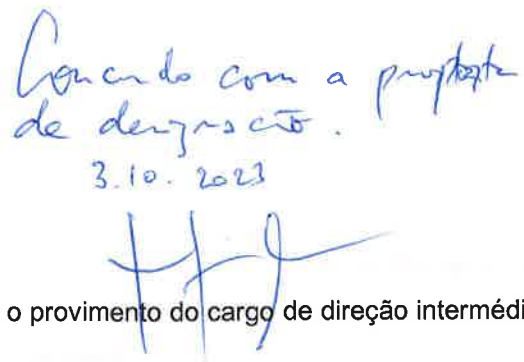 Concordo com a proposta
de designação.
3.10.2023
o provimento do cargo de direção intermédi